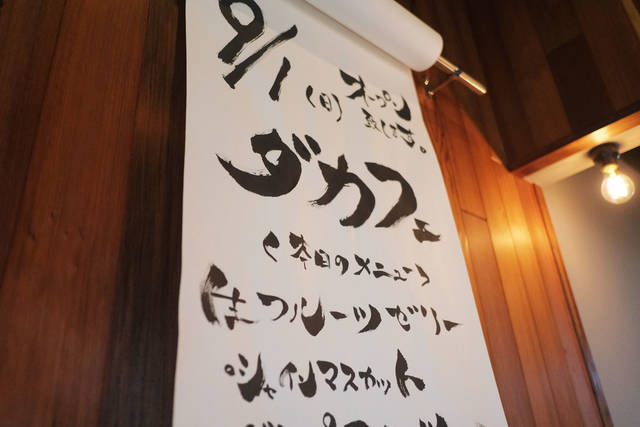 9/1(日)オープン
致します。
ダカフェ
〈本日のメニュー〉
生フルーツゼリー
シャインマスカット